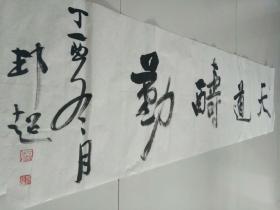 天道醻勤
丁酉冬月
封超